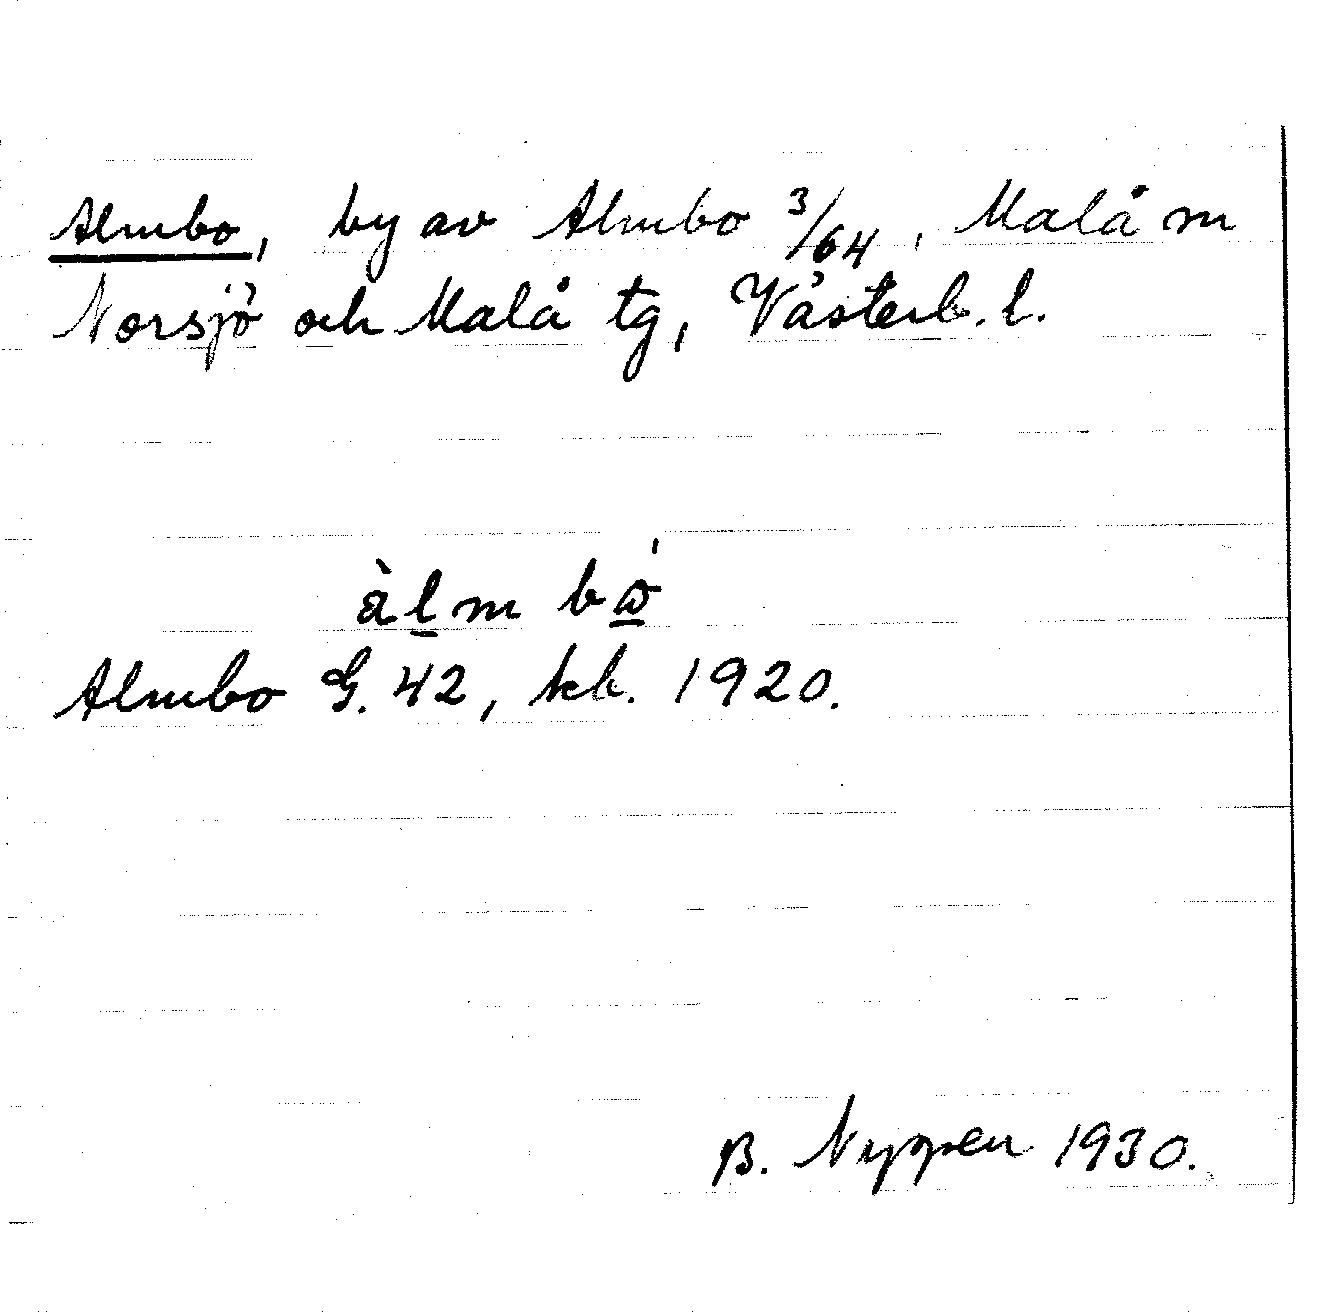 Almbo, by av Almbo 3/64, Malå sn
Norsjö och Malå tg, Västerb. l.
àlm bώ̲
Almbo G. 42, kb. 1920.
B. Nyppen 1930.